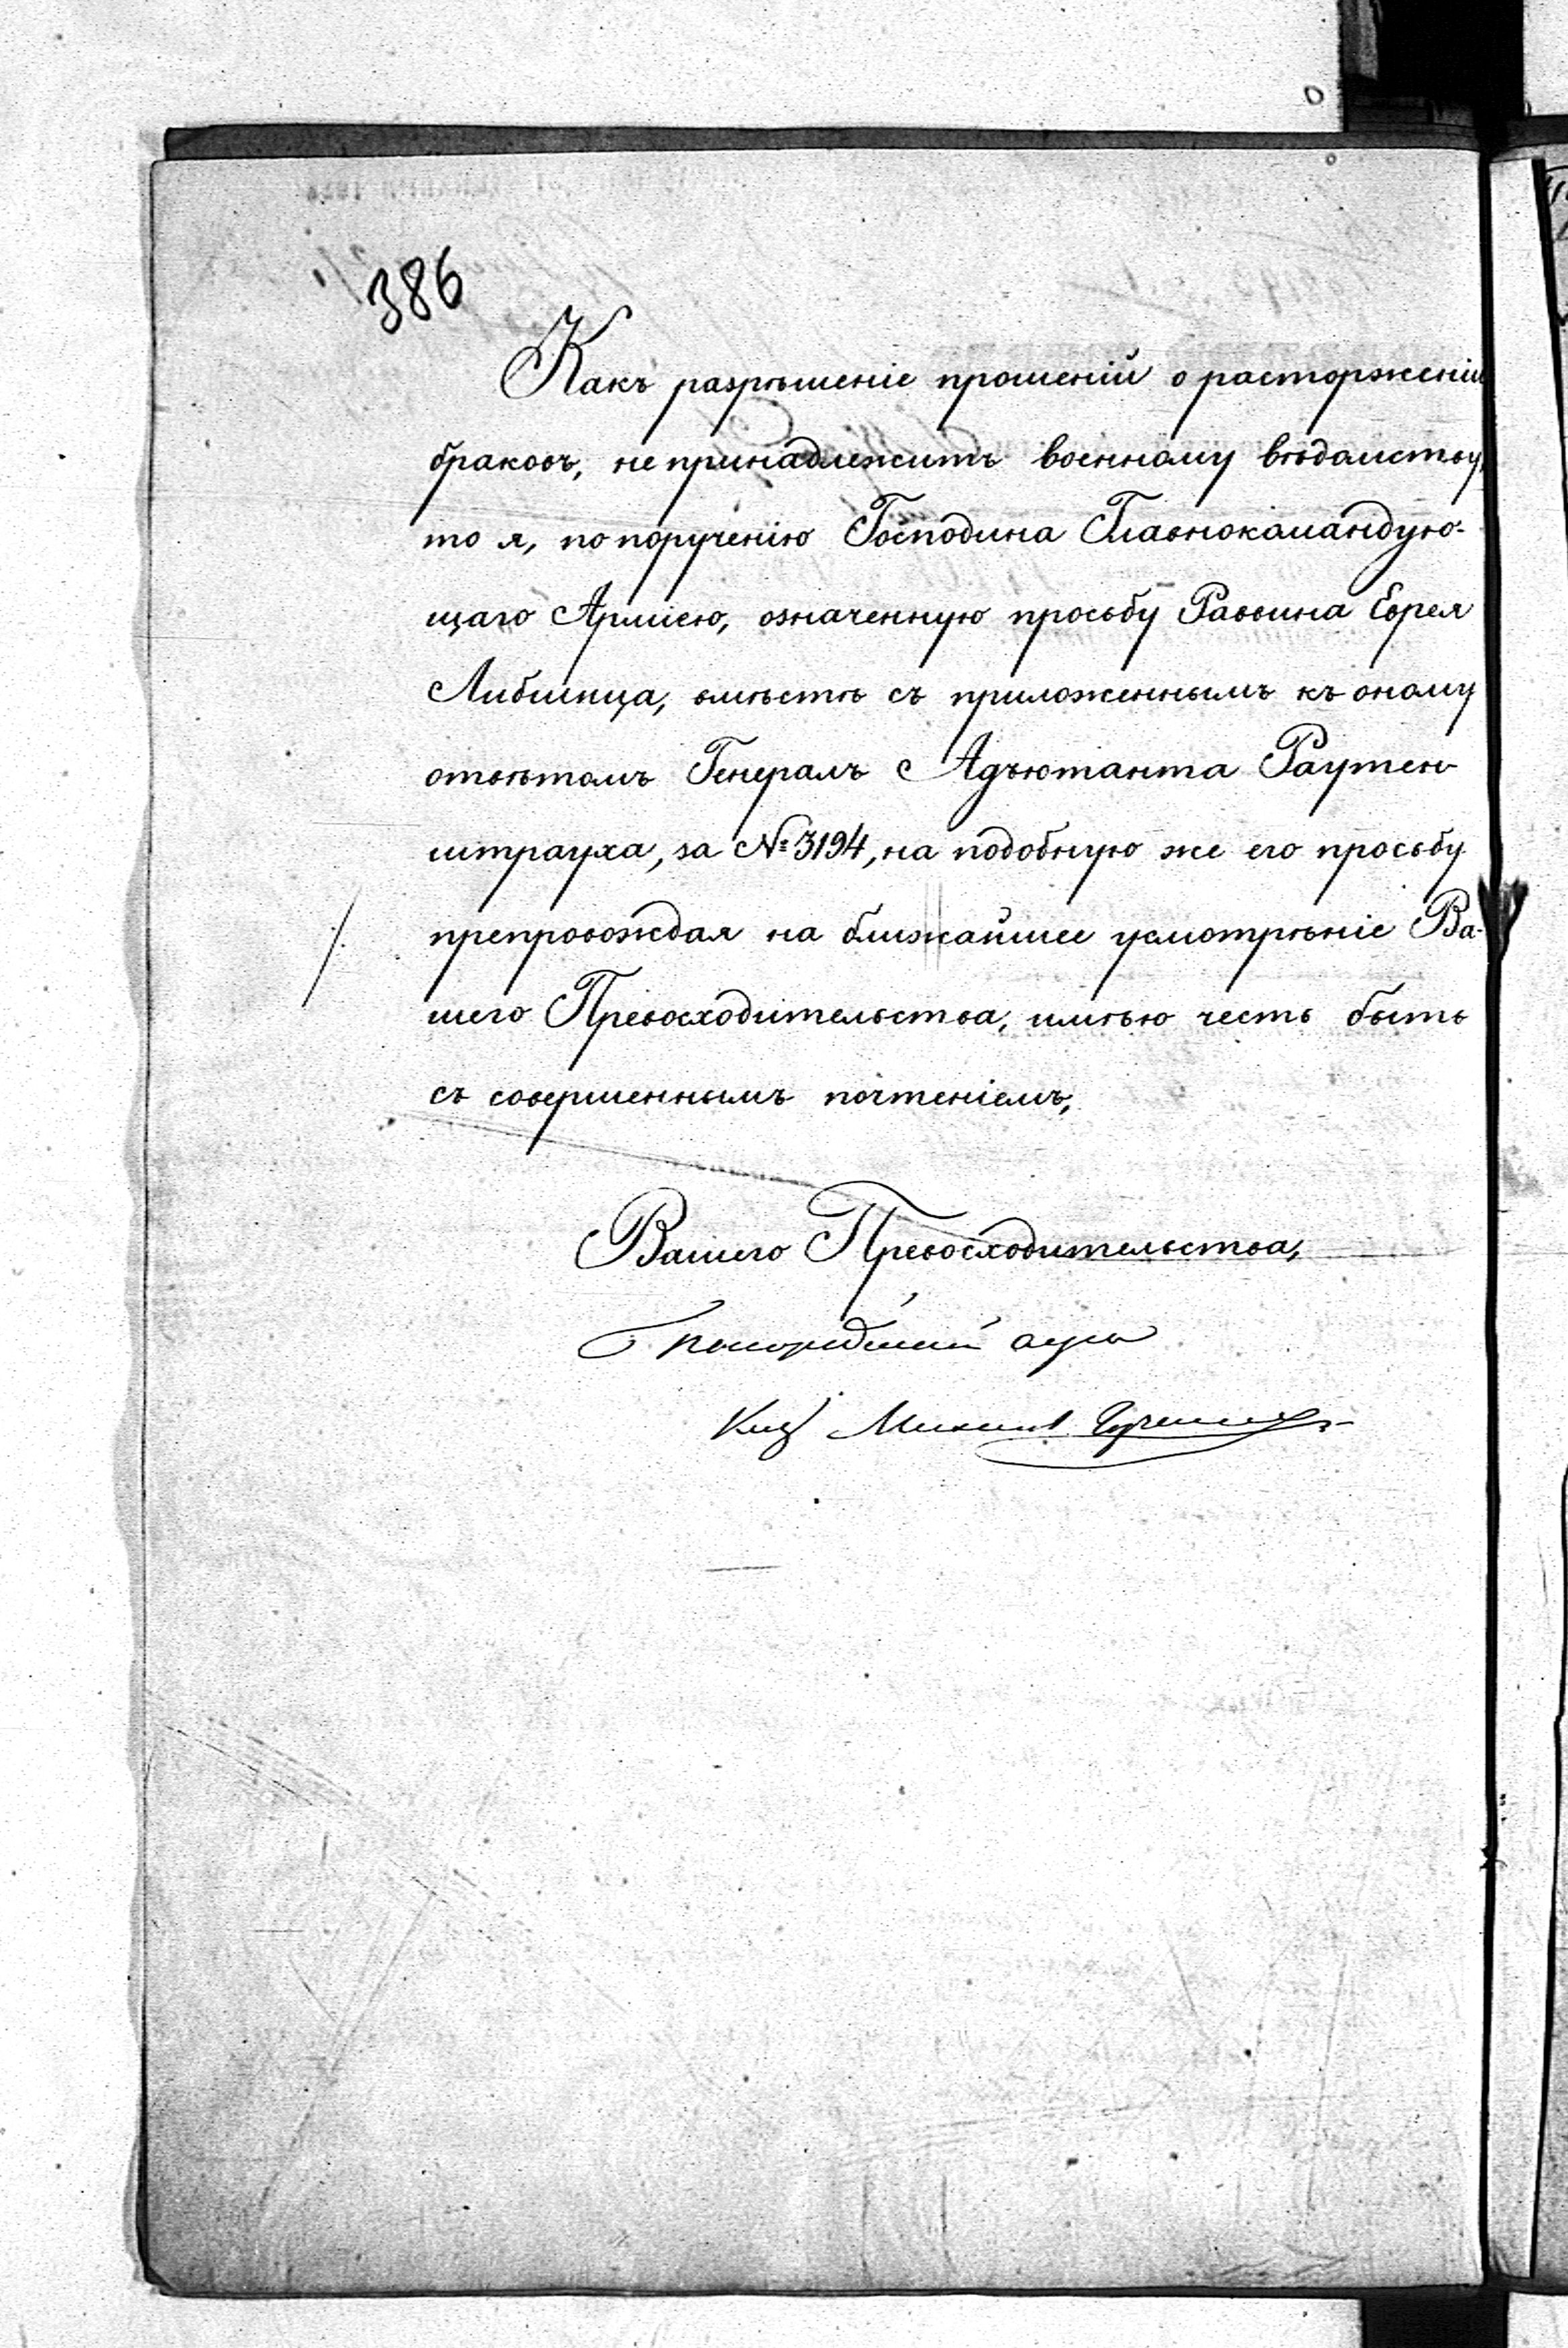 386
Какъ разрѣшеніе прошеній о расторженіи
браковъ, не принадлежитъ военному вѣдомству,
то я, по порученію Господина Главнокомандую-
щаго Арміею, означенную просьбу Раввина Еврея
Либшица, вмѣстѣ съ приложеннымъ къ оному
отвѣтомъ Генералъ Адъютанта Раутен-
штрауха, за № 3194, на подобную же его просьбу
препровождая на ближайшее усмотрѣніе Ва-
шего Превосходительства, имѣю честь быть
съ совершеннымъ почтеніемъ,
Вашего Превосходительства,
Покорнѣйшій слуга